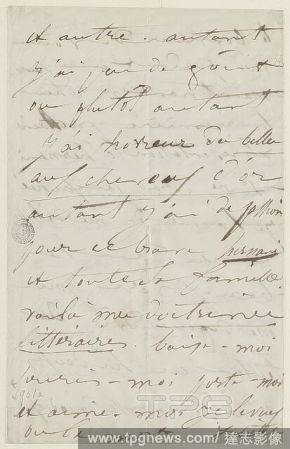 et autre. autant
j'ai peu de goût
ou plutôt autant
j'ai horreur du belles
aux cheveux d'or
autant j'ai de
pour ce brave
et toute la famille.
voilà mes doctrines
littéraires. baise-moi
souris-moi
et aime-moi
TPG
www.tpgnews.com 達志影像